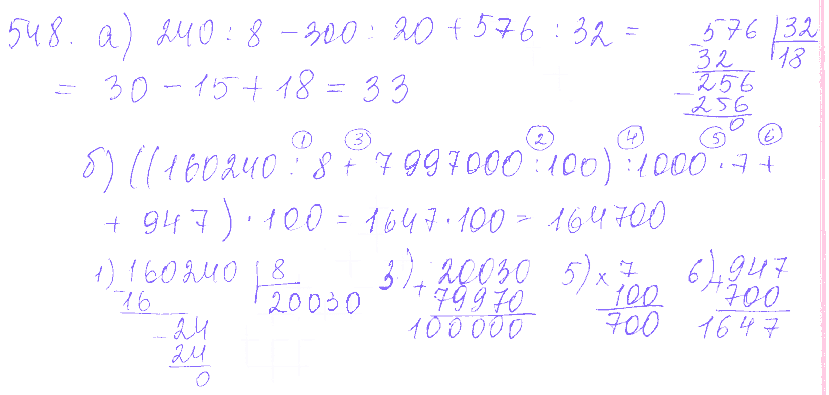 548. а) 240 : 8 - 300 : 20 + 576 : 32 =
= 30 - 15 + 18 = 33
- 576 | 32
32 18
- 256
256
0
1 3 2 4 5 6
б) ((160240 : 8 + 7997000 : 100) : 1000 · 7 +
+ 947) · 100 = 1647 · 100 = 164700
1) 160240 | 8
16 20030
- 24
24
0
3) + 20030
79970
100000
5) × 7
100
700
6) + 947
700
1647